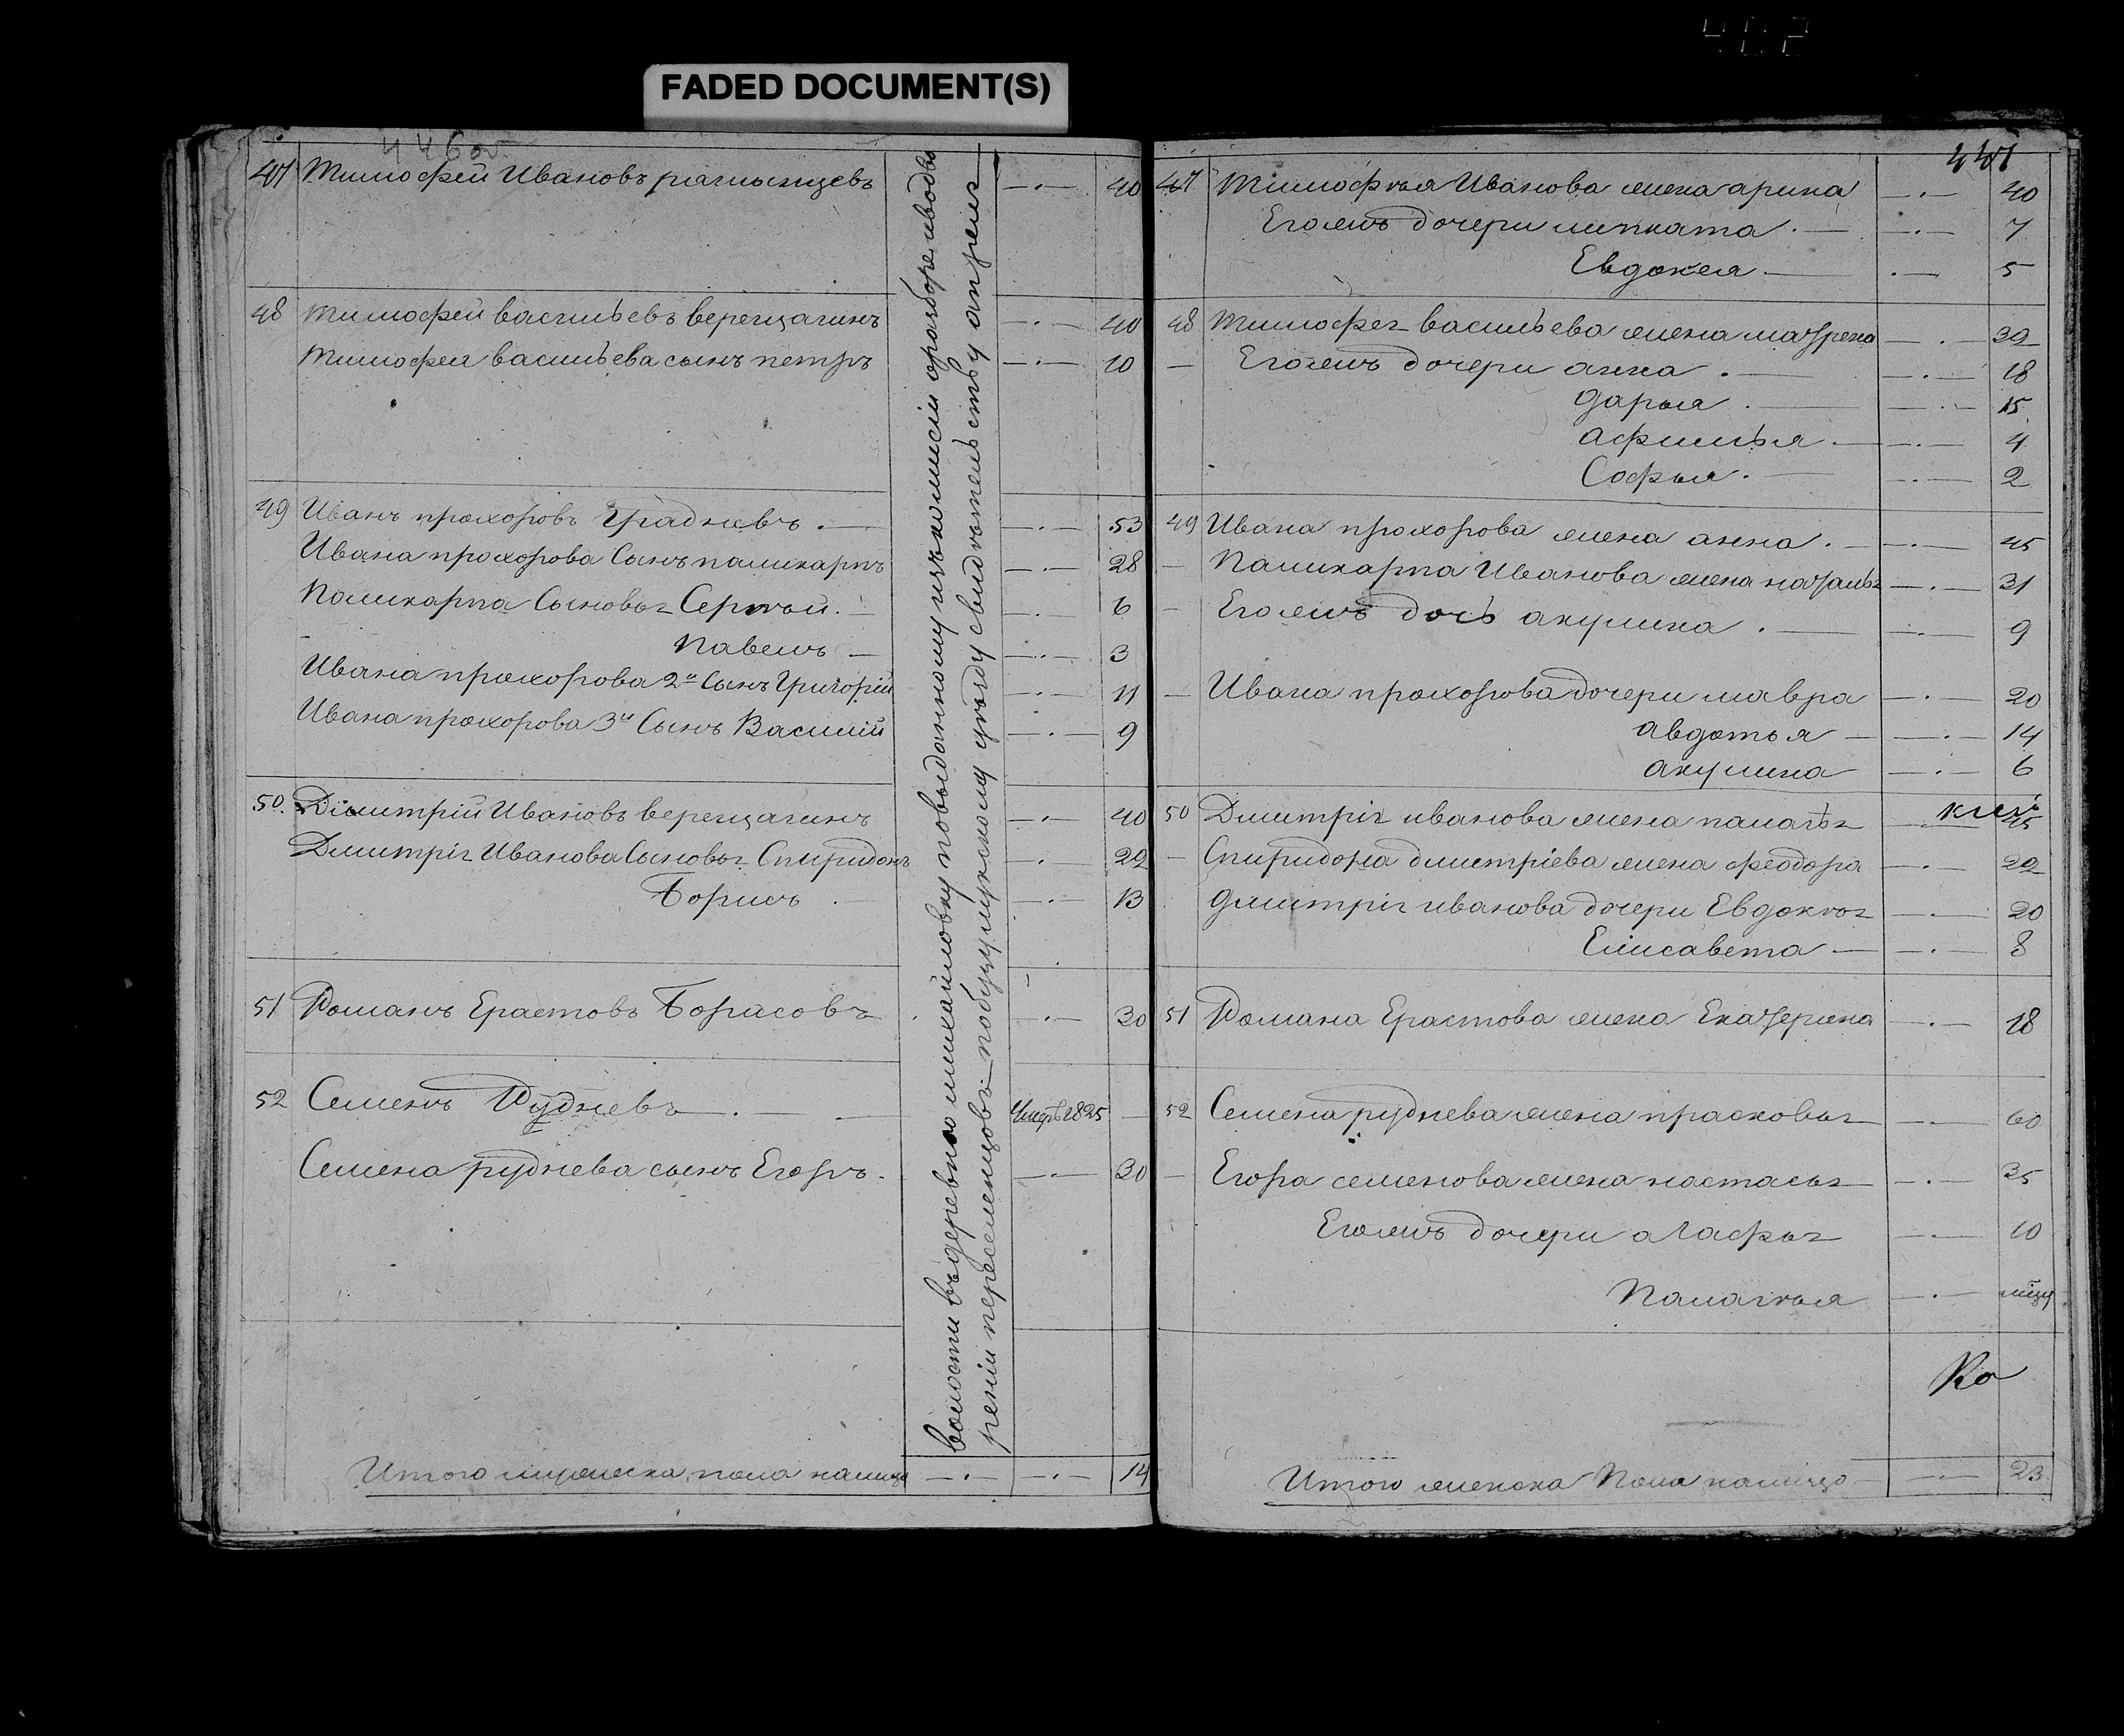 FADED DOCUMENT(S)
446 об
47 Тимофей Ивановъ —·— 40
48 тимофей васильевъ верещагинъ —·— 40
тимофея васильева сынъ петръ —·— 10
49 Иванъ прохоровъ Грудневъ. —·— 53
Ивана прохорова Сынъ паликарпъ —·— 28
Паликарпа Сыновья Сергѣй. —·— 6
Павелъ — —·— 3
Ивана прохорова 2й Сынъ Григорій —·— 11
Ивана прохорова 3й Сынъ Василій —·— 9
50. Димитрій Ивановъ верещагинъ —·— 40
Дмитрія Иванова Сыновья Спиридонъ —·— 22
Борисъ —·— 13
51 Романъ Ерастовъ Борисовъ —·— 30
52 Семенъ Рудневъ —·— Умеръ 1825 —
Семена руднева сынъ Егоръ. —·— 30
волости въ деревню михайловку повыданному изъ комисіи оразборе иводво
реніи переселенцовъ побузулукскому уѣзду свидѣтельству апреля
Итого мужеска пола налицо —·— —·— 14
447
47 Тимофѣя Иванова жена арина —·— 40
Егожъ дочери —·— 7
Евдокея —·— 5
48 Тимофея васильева жена матрена —·— 39
— Егожъ дочери анна. —·— 18
дарья. —·— 15
афимья. —·— 4
Софья. —·— 2
49 Ивана прохорова жена анна. —·— 45
— Паликарпа Иванова жена наталья —·— 31
— Егожъ дочь акулина. —·— 9
— Ивана прохорова дочери мавра —·— 20
авдотья —·— 14
акулина —·— 6
50 Дмитрія иванова жена палагѣя —·— 45
— Спиридона дмитріева жена феодора —·— 22
дмитрія иванова дочери Евдокѣя —·— 20
Елисавета —·— 8
51 Романа Ерастова жена Екатерина —·— 18
52 Семена руднева жена прасковья —·— 60
— Егора семенова жена настасья —·— 35
Егожъ дочери агафья —·— 10
Палагѣя —·—
Ко
Итого женска Пола налицо —·— 23